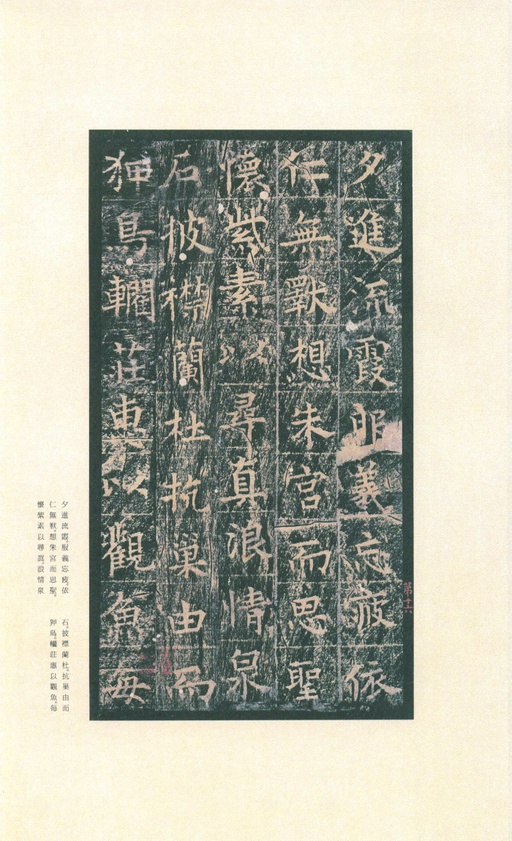 夕進流霞服義忘疲依
仁無歝想朱宮而思聖
懷紫素以尋真浪情泉
石披襟蘭杜抗巢由而
狎鳥轥莊惠以觀魚每
第十六
夕進流霞。服義忘疲、依
仁無歝。想朱宮而思聖、
懷紫素以尋真。浪情泉
石、披襟蘭杜。抗巢由而
狎鳥、轥莊惠以觀魚。每